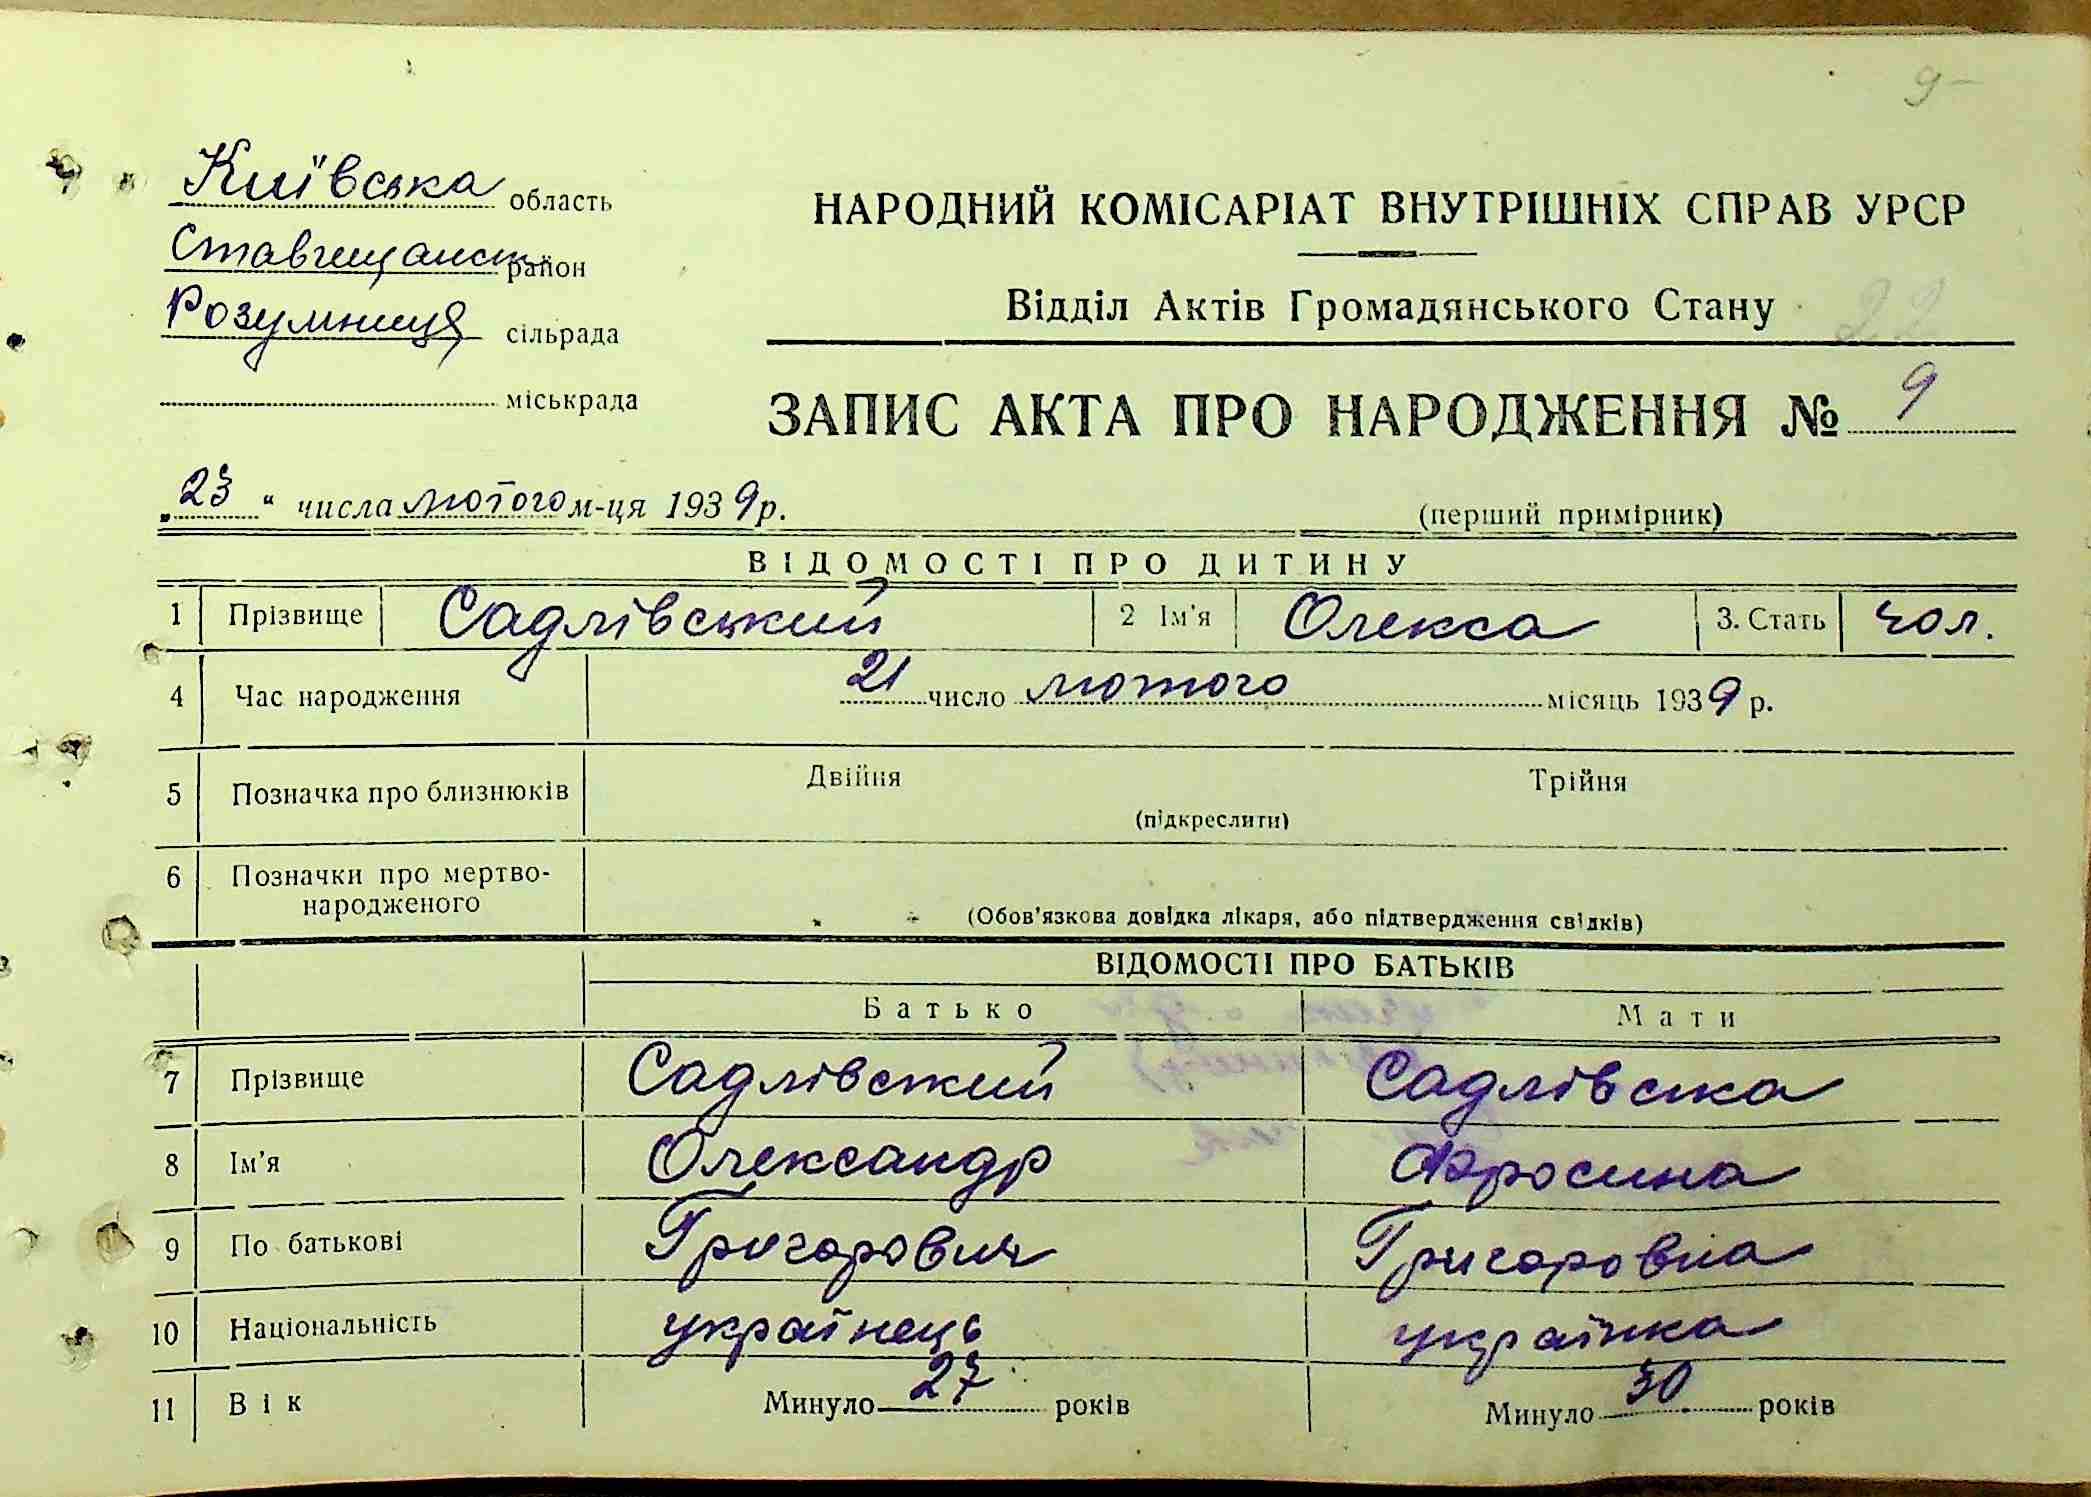 9-
Київська область
Ставищанськ район
Розумниця сільрада
міськрада
НАРОДНИЙ КОМІСАРІАТ ВНУТРІШНІХ СПРАВ УРСР
Відділ Актів Громадянського Стану
22
ЗАПИС АКТА ПРО НАРОДЖЕННЯ № 9
„23“ числа лютого м-ця 1939 р.
(перший примірник)
ВІДОМОСТІ ПРО ДИТИНУ
1 Прізвище Садлівський 2 Ім'я Олекса 3. Стать чол.
4 Час народження 21 число лютого місяць 1939 р.
5 Позначка про близнюків Двійня Трійня
(підкреслити)
6 Позначки про мертво-
народженого
(Обов'язкова довідка лікаря, або підтвердження свідків)
ВІДОМОСТІ ПРО БАТЬКІВ
Батько Мати
7 Прізвище Садлівский Садлівска
8 Ім'я Олександр Фросина
9 По батькові Григорович Григоровна
10 Національність українець українка
11 Вік Минуло 27 років Минуло 30 років